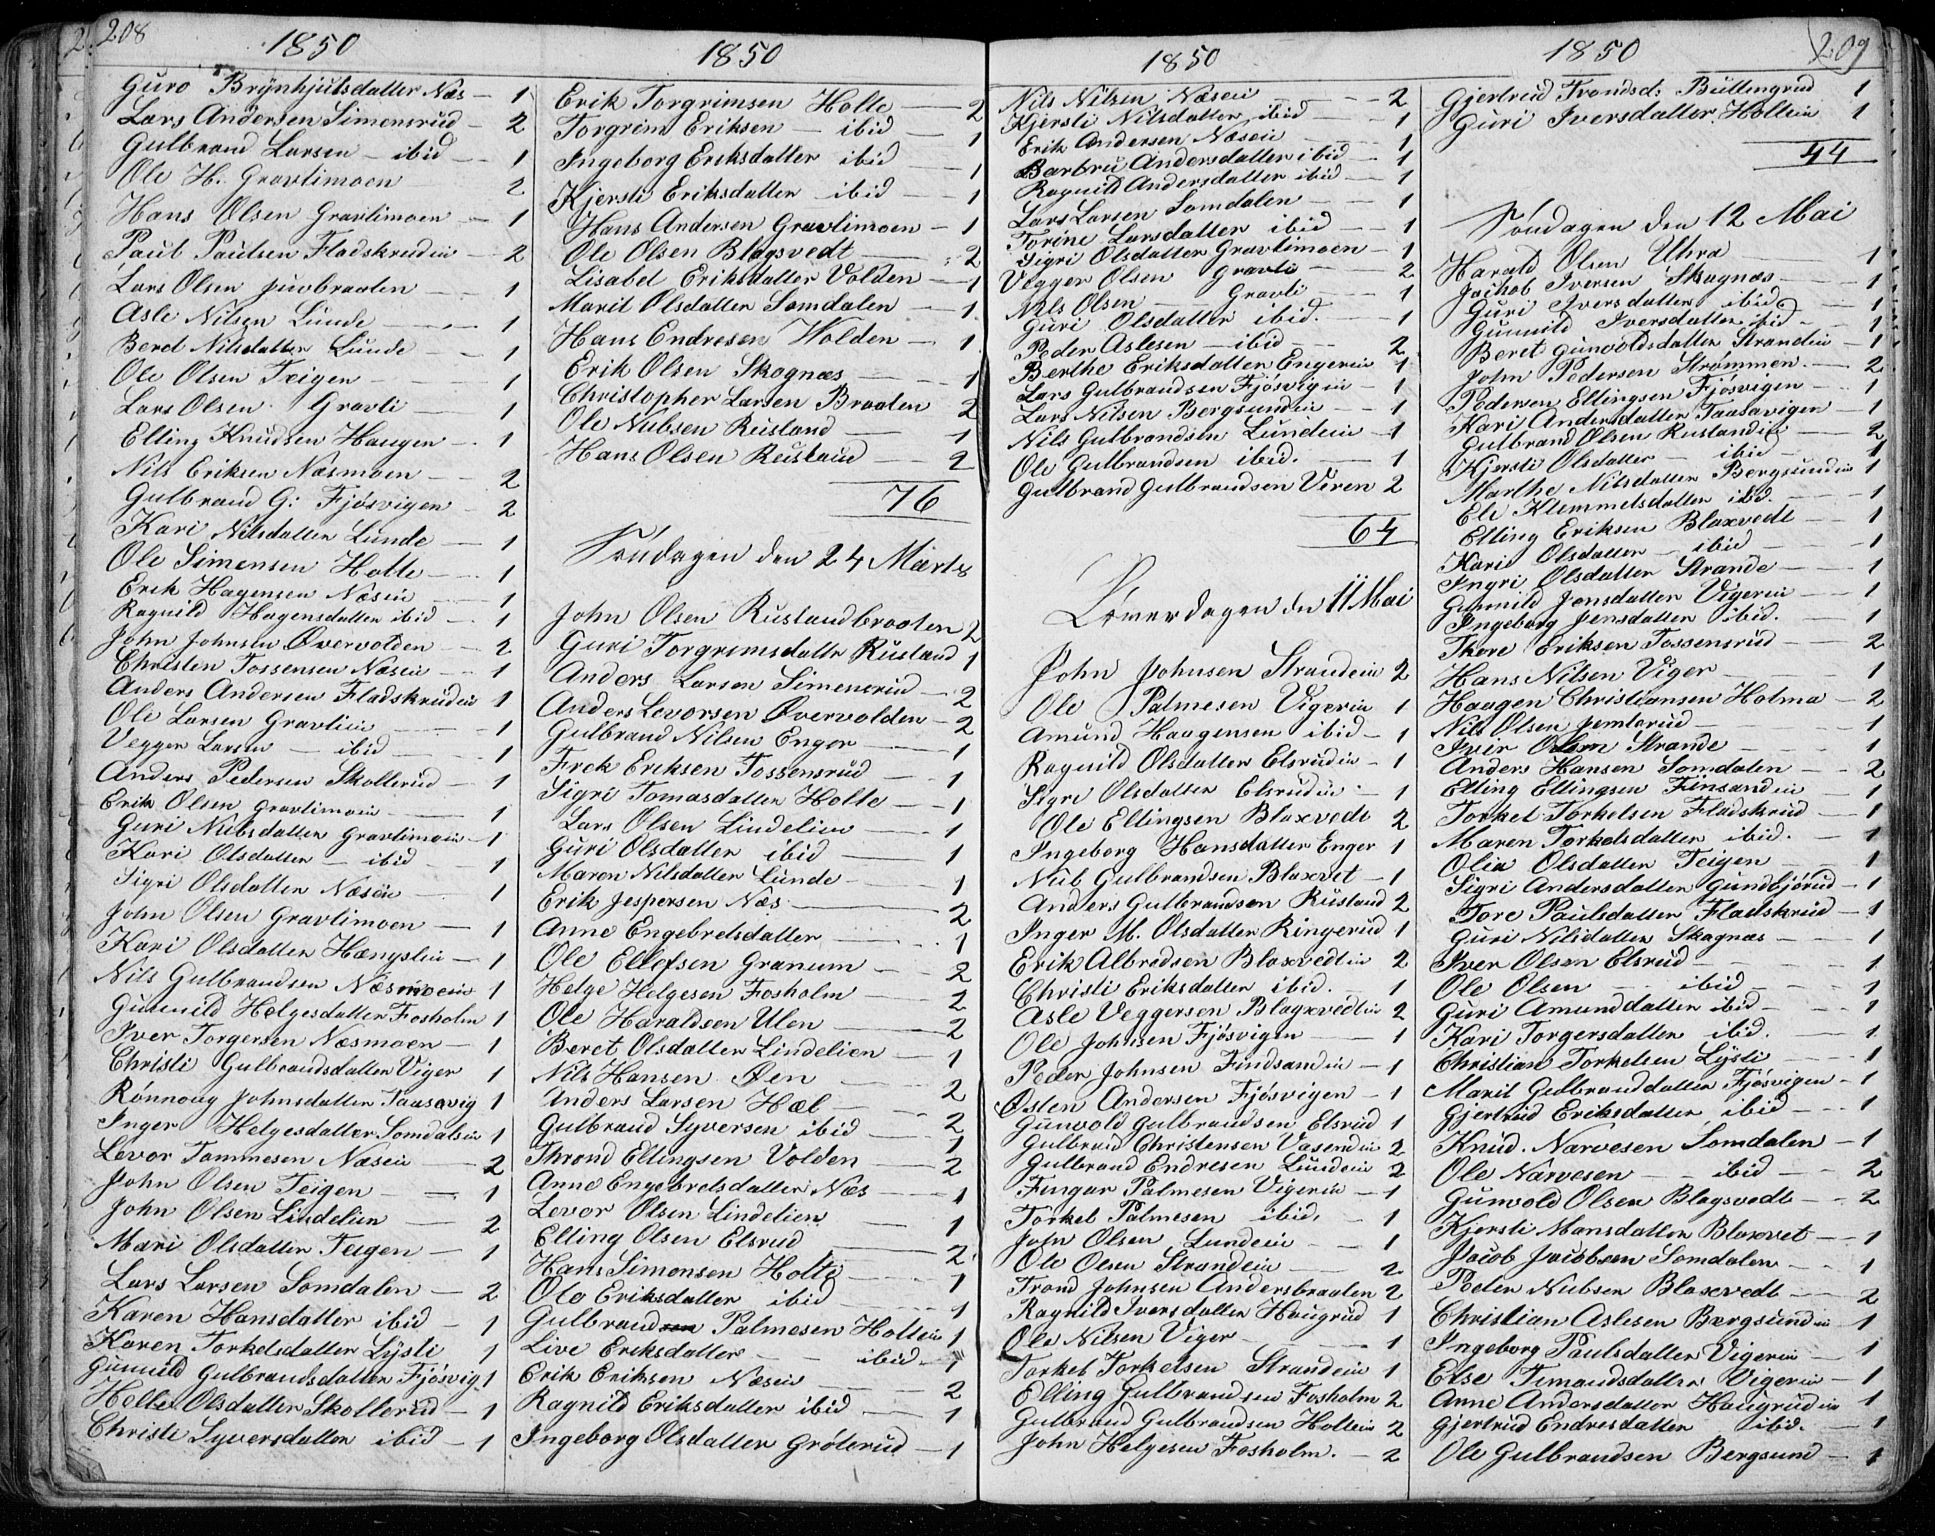 208
1850
Guro Brynhjulsdatter Næs — 1
Lars Andersen Simensrud — 2
Gulbrand Larsen — ibid — 1
Ole H. Gravlimoen 2
Hans Olsen Gravlimoen — 1
Paul Paulsen Fladskrudein — 2
Lars Olsen Juvbraaten — 1
Asle Nilsen Lunde — 1
Beret Nilsdatter Lunde — 1
Ole Olsen Teigen — 1
Lars Olsen Gravli — 1
Elling Knudsen Haugen — 1
Nils Eriksen Næsmoen — 2
Gulbrand G: Fjøsvigen — 2
Kari Nilsdatter Lunde — 1
Ole Simensen Holte — 1
Erik Hagensen Næsein — 1
Ragnild Hagensdatter ibid — 1
John Johnsen Øvervolden — 2
Christen Tossensen Næsein — 1
Anders Andersen Fladskrudein 1
Ole Larsen Gravliein — 1
Vegger Larsen — ibid — 1
Anders Pedersen Skollerud — 1
Erik Olsen Gravlimoein — 1
Guri Nubsdatter Gravlimoein — 1
Kari Olsdatter — ibid — 1
Sigri Olsdatter Næsein — 1
John Olsen Gravlimoen — 1
Kari Olsdatter Hængslein — 1
Nils Gulbrandsen Næsmoein 1
Gunnild Helgesdatter Fosholm 1
Iver Torgersen Næsmoen — 1
Christi Gulbrandsdatter Viger 1
Rønnoug Johnsdatter Taasavig 1
Inger Helgesdatter Somdalein 1
Levor Tommesen Næsein — 2
John Olsen Teigen — 1
John Olsen Lindelien — 2
Mari Olsdatter Teigen — 1
Lars Larsen Somdalen — 2
Karen Hansdatter ibid — 1
Karen Torkelsdatter Lÿsli 1
Gunnild Gulbrandsdatter Fjøsvig 1
Helle Olsdatter Skollerud — 1
Christi Syversdatter ibid — 1
1850
Erik Torgrimsen Holte — 2
Torgrim Eriksen — ibid — 1
Ingeborg Eriksdatter ibid — 1
Kjersti Eriksdatter ibid — 1
Hans Andersen Gravlimoen — 1
Ole Olsen Blagsvedt — 2
Lisabel Eriksdatter Volden — 1
Marit Olsdatter Somdalen — 1
Hans Endresen Holden — 1
Erik Olsen Skognæs — 1
Christopher Larsen Braaten 2
Ole Nubsen Reisland — 1
Hans Olsen Reisland — 2
76
Søndagen den 24 Marts
John Olsen Ruslandbraaten 2
Guri Torgrimsdatter Rusland 1
Anders Larsen Simensrud — 2
Anders Levorsen Øvervolden — 2
Gulbrand Nilsen Enger — 1
Frek Eriksen Tossensrud — 1
Sigri Tomasdatter Holte — 1
Lars Olsen Lindelien — 1
Guri Olsdatter ibid — 1
Maren Nilsdatter Lunde — 1
Erik Jespersen Næs — 2
Anne Engebretsdatter — 1
Ole Ellefsen Granum — 2
Helge Helgesen Fosholm — 2
Ole Haraldsen Ulen — 2
Beret Olsdatter Lindelien — 1
Nils Hansen Øen — 2
Anders Larsen Hæl — 2
Gulbrand Syversen ibid — 1
Thrond Ellingsen Volden — 2
Anne Engebretsdatter Næs — 1
Levor Olsen Lindelien — 1
Elling Olsen Elsrud — 2
Hans Simonsen Holte — 1
Ole Eriksdatter ibid — 1
Gulbrand Palmesen Holtein 1
Live Eriksdatter — ibid — 1
Erik Eriksen Næsein — 2
Ragnild Eriksdatter ibid — 1
Ingeborg Olsdatter Grøterud — 1
1850
Nils Nilsen Næsein — 2
Kjersti Nilsdatter ibid — 1
Erik Andersen Næsein — 1
Barbru Andersdatter ibid — 1
Ragnild Andersdatter ibid — 1
Lars Larsen Somdalen — 1
Torine Larsdatter ibid — 1
Sigri Olsdatter Gravlimoen — 1
Vegger Olsen Gravli — 2
Nils Olsen — Gravli — 1
Guri Olsdatter ibid. — 1
Peder Aslesen — ibid — 2
Berthe Eriksdatter Engerein 1
Lars Gulbrandsen Fjøsvigein — 1
Lars Nilsen Bergsundein — 1
Nils Gulbrandsen Lundein — 1
Ole Gulbrandsen ibid. — 1
Gulbrand Gulbrandsen Veren 2
64
Løverdagen den 11 Mai
John Johnsen Strandein 2
Ole Palmesen Vigerein 1
Amund Haagensen ibid — 1
Ragnild Olsdatter Elsrudein — 1
Sigri Olsdatter Elsrudein — 1
Ole Ellingsen Blaxvedt 2
Ingeborg Hansdatter Enger 1
Nub Gulbrandsen Blaxvet — 1
Anders Gulbrandsen Rusland 2
Inger M. Olsdatter Ringerud 1
Erik Albredsen Blaxvedtein 2
Christi Eriksdatter ibid. — 1
Asle Veggersen Blagxvedtein 2
Ole Johnsen Fjøsvigen — 1
Peder Johnsen Findsandein — 1
Østen Andersen Fjøsvigen — 1
Gunvold Gulbrandsen Elsrud 1
Gulbrand Christensen Vasendein 2
Gulbrand Endresen Lundein 2
Fingar Palmesen Vigerein — 1
Torkel Palmesen ibid. — 1
John Olsen Lundein — 1
Ole Olsen Strandein — 2
Trond Johnsen Andersbraaten 2
Ragnild Iversdatter Haugrud 1
Ole Nilsen Viger — 1
Torkel Torkelsen Strandein 1
Elling Gulbrandsen Fosholm 2
Gulbrand Gulbrandsen Holtein 2
John Helgesen Fosholm. — 2
1850
209
Gjertrud Trondsd: Buttingrud 1
Guri Iversdatter Holtein 1
44
Søndagen den 12 Mai
Harald Olsen Uhra 1
Jachob Iversen Skagnæs — 1
Guri Iversdatter ibid — 1
Gunnild Iversdatter ibid — 1
Beret Gunvoldsdatter Strandein — 1
John Pedersen Strømmen — 2
Pedersen Ellingsen Fjøsvigen — 1
Kari Andersdatter Taasavigen — 1
Gulbrand Olsen Ruslandein — 2
Kjersti Olsdatter — ibid — 1
Marthe Nilsdatter Bergsundein 1
Eli Klemmetsdatter ibid. — 1
Elling Eriksen Blaxvedt — 1
Kari Olsdatter — ibid — 1
Ingri Olsdatter Strande — 1
Gunnild Jonsdatter Vigerein — 1
Ingeborg Jensdatter ibid. — 1
Thore Eriksen Tossensrud — 2
Hans Nilsen Viger — 1
Haagen Christiansen Holma — 2
Nils Olsen Jemterud — 1
Iver Olsen Strande — 1
Anders Hansen Somdalen — 2
Elling Ellingsen Finsandein 1
Torkel Torkelsen Fladskrud — 1
Maren Torkelsdatter ibid. — 1
Olia Olsdatter Teigen — 1
Sigri Andersdatter Gundbjørud — 1
Tore Paulsdatter Fladskrud — 1
Guri Nilsdatter Skagnæs — 1
Iver Olsen Elsrud — 1
Ole Olsen — ibid — 1
Guri Amunddatter ibid — 1
Kari Torgersdatter ibid. 1
Christian Torkelsen Lÿsli — 1
Marit Gulbranddatter Fjøsvigen — 1
Gjertrud Eriksdatter ibid — 1
Knud Narvesen Somdalen — 1
Ole Narvesen — ibid — 2
Gunvold Olsen Blagsvedt — 2
Kjersti Hansdatter Blaxvet — 1
Jacob Jacobsen Somdalen — 1
Peder Nubsen Blaxvedt — 2
Christian Aslesen Bergsundein — 1
Ingeborg Paulsdatter Vigerein — 1
Else Timandsdatter Vigerein — 1
Anne Andersdatter Haugrudein 1
Gjertrud Endresdatter ibid. — 1
Ole Gulbrandsen Bergsund — 1